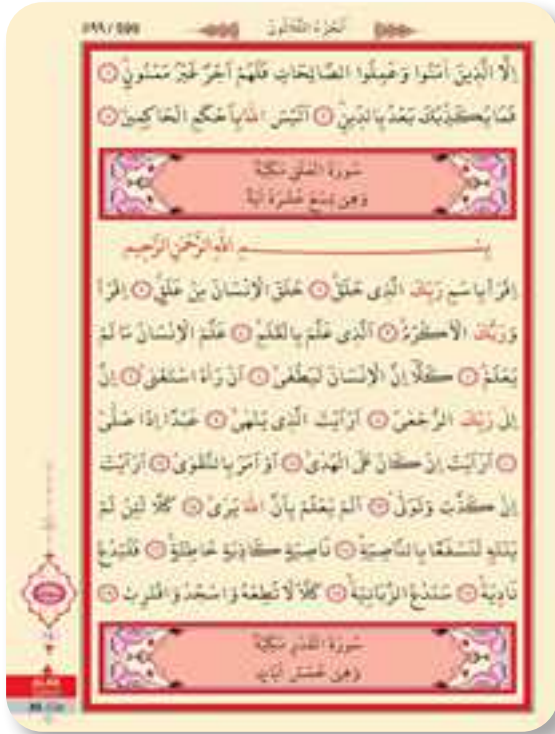 ٥٩٩ / 599 اَلْجُزْءُ الثَّلَاثُونَ
اِلَّا الَّذِينَ اٰمَنُوا وَعَمِلُوا الصَّالِحَاتِ فَلَهُمْ اَجْرٌ غَيْرُ مَمْنُونٍ
فَمَا يُكَذِّبُكَ بَعْدُ بِالدِّينِ اَلَيْسَ اللّٰهُ بِاَحْكَمِ الْحَاكِمِينَ
سُورَةُ الْعَلَقِ مَكِّيَّةٌ
وَهِيَ تِسْعَ عَشْرَةَ اٰيَةً
بِسْمِ اللّٰهِ الرَّحْمٰنِ الرَّحِيمِ
اِقْرَاْ بِاسْمِ رَبِّكَ الَّذِى خَلَقَ خَلَقَ الْاِنْسَانَ مِنْ عَلَقٍ اِقْرَاْ
وَرَبُّكَ الْاَكْرَمُ اَلَّذِى عَلَّمَ بِالْقَلَمِ عَلَّمَ الْاِنْسَانَ مَا لَمْ
يَعْلَمْ كَلَّا اِنَّ الْاِنْسَانَ لَيَطْغٰى اَنْ رَاٰهُ اسْتَغْنٰى اِنَّ
اِلٰى رَبِّكَ الرُّجْعٰى اَرَاَيْتَ الَّذِى يَنْهٰى عَبْدًا اِذَا صَلّٰى
اَرَاَيْتَ اِنْ كَانَ عَلَى الْهُدٰى اَوْ اَمَرَ بِالتَّقْوٰى اَرَاَيْتَ
اِنْ كَذَّبَ وَتَوَلّٰى اَلَمْ يَعْلَمْ بِاَنَّ اللّٰهَ يَرٰى كَلَّا لَئِنْ لَمْ
يَنْتَهِ لَنَسْفَعًا بِالنَّاصِيَةِ نَاصِيَةٍ كَاذِبَةٍ خَاطِئَةٍ فَلْيَدْعُ
نَادِيَهُ سَنَدْعُ الزَّبَانِيَةَ كَلَّا لَا تُطِعْهُ وَاسْجُدْ وَاقْتَرِبْ
سُورَةُ الْقَدْرِ مَكِّيَّةٌ
وَهِيَ خَمْسُ اٰيَاتٍ